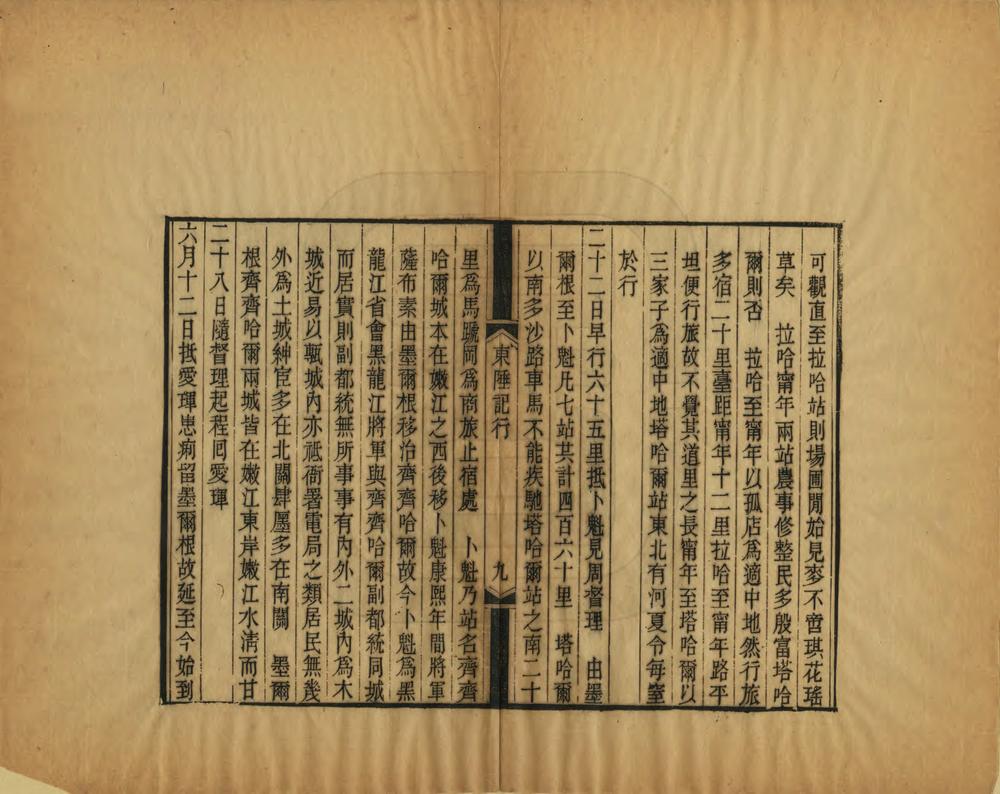 可觀直至拉哈站則場圃閒始見麥不啻琪花瑤
草矣　拉哈甯年兩站農事修整民多殷富塔哈
爾則否　拉哈至甯年以孤店爲適中地然行旅
多宿二十里臺距甯年十二里拉哈至甯年路平
坦便行旅故不覺其道里之長甯年至塔哈爾以
三家子爲適中地塔哈爾站東北有河夏令每窒
於行
二十二日早行六十五里抵卜魁見周督理　由墨
爾根至卜魁凡七站其計四百六十里　塔哈爾
以南多沙路車馬不能疾馳塔哈爾站之南二十
東陲記行
九
里爲馬蹏岡爲商旅止宿處　卜魁乃站名齊齊
哈爾城本在嫩江之西後移卜魁康熙年間將軍
薩布素由墨爾根移治齊齊哈爾故今卜魁爲黑
龍江省會黑龍江將軍與齊齊哈爾副都統同城
而居實則副都統無所事事有內外二城內爲木
城近易以甎城內亦祗衙署電局之類居民無幾
外爲土城紳宦多在北關肆廛多在南關　墨爾
根齊齊哈爾兩城皆在嫩江東岸嫩江水淸而甘
二十八日隨督理起程囘愛琿
六月十二日抵愛琿患痢留墨爾根故延至今始到